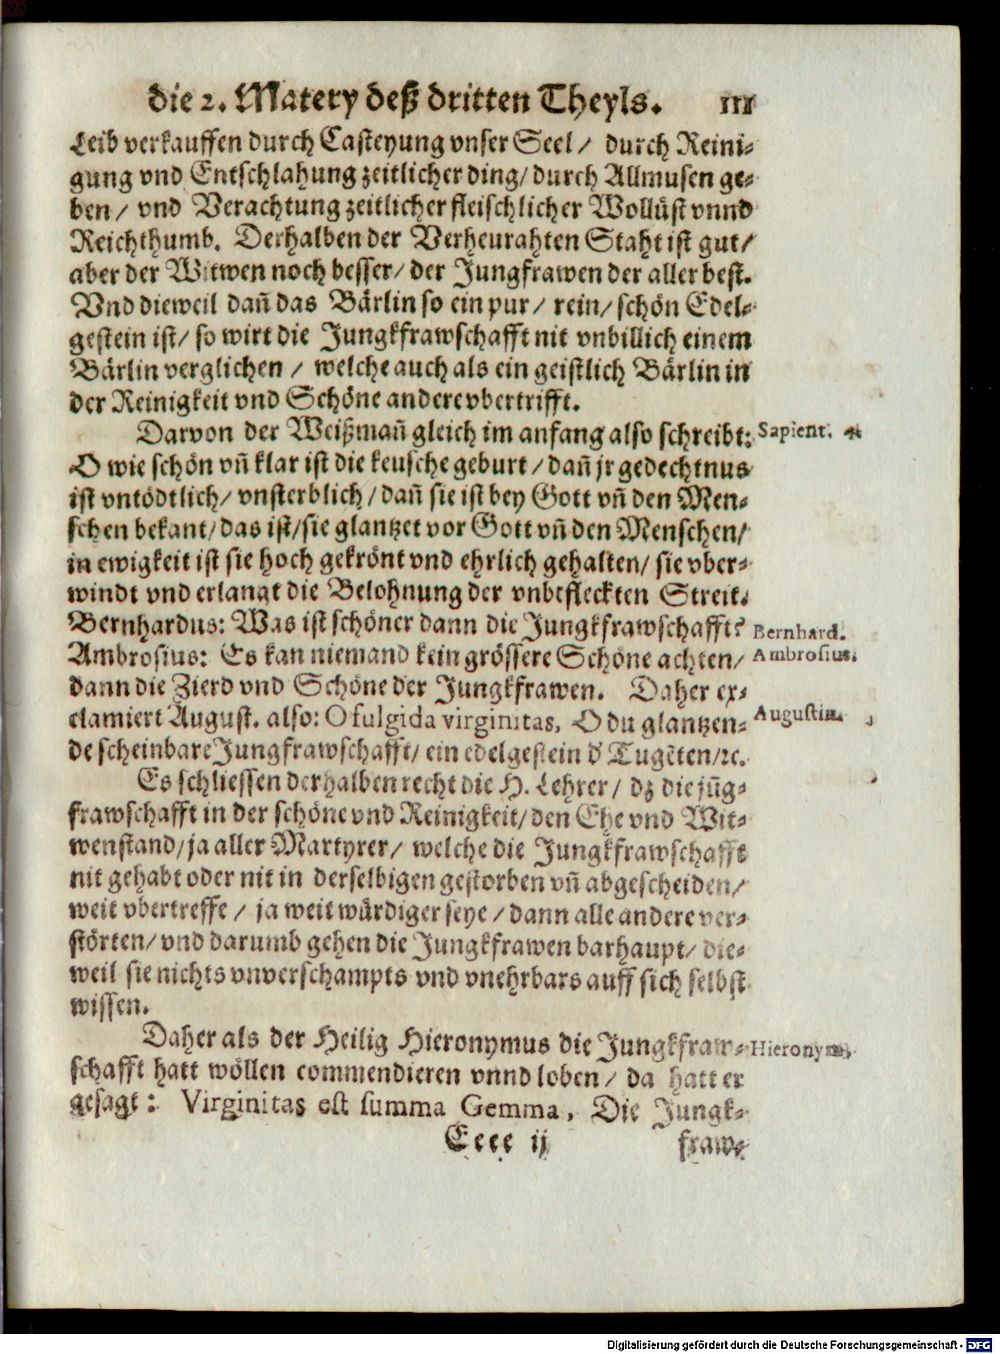 die 2. Matery deß dritten Theyls. III
Leib verkauffen durch Casteyung vnser Seel / durch Reini-
gung vnd Entschlahung zeitlicher ding / durch Allmusen ge-
ben / vnd Verachtung zeitlicher fleischlicher Wollüst vnnd
Reichthumb. Derhalben der Verheurahten Staht ist gut /
aber der Witwen noch besser / der Jungfrawen der aller best.
Vnd dieweil dañ das Bärlin so ein pur / rein / schön Edel-
gestein ist / so wirt die Jungkfrawschafft nit vnbillich einem
Bärlin verglichen / welche auch als ein geistlich Bärlin in
der Reinigkeit vnd Schöne andere vbertrifft.
Darvon der Weißmañ gleich im anfang also schreibt: Sapient. 4
O wie schön vñ klar ist die keusche geburt / dañ jr gedechtnus
ist vntödtlich / vnsterblich / dañ sie ist bey Gott vñ den Men-
schen bekant / das ist / sie glantzet vor Gott vñ den Menschen /
in ewigkeit ist sie hoch gekrönt vnd ehrlich gehalten / sie vber-
windt vnd erlangt die Belohnung der vnbefleckten Streit.
Bernhardus: Was ist schöner dann die Jungkfrawschafft? Bernhard.
Ambrosius: Es kan niemand kein grössere Schöne achten / Ambrosius.
dann die Zierd vnd Schöne der Jungkfrawen. Daher ex-
clamiert August. also: O fulgida virginitas, O du glantzen- Augustin.
de scheinbare Jungfrawschafft / ein edelgestein d' Tugẽten / ꝛc.
Es schliessen derhalben recht die H. Lehrer / dz die jũg-
frawschafft in der schöne vnd Reinigkeit / den Ehe vnd Wit-
wenstand / ja aller Martyrer / welche die Jungkfrawschafft
nit gehabt oder nit in derselbigen gestorben vñ abgescheiden /
weit vbertreffe / ja weit würdiger seye / dann alle andere ver-
störten / vnd darumb gehen die Jungkfrawen barhaupt / die-
weil sie nichts vnverschampts vnd vnehrbars auff sich selbst
wissen.
Daher als der Heilig Hieronymus die Jungkfraw- Hieronym.
schafft hatt wöllen commendieren vnnd loben / da hatt er
gesagt: Virginitas est summa Gemma, Die Jungk-
Eeee ij fraw-
Digitalisierung gefördert durch die Deutsche Forschungsgemeinschaft - DFG